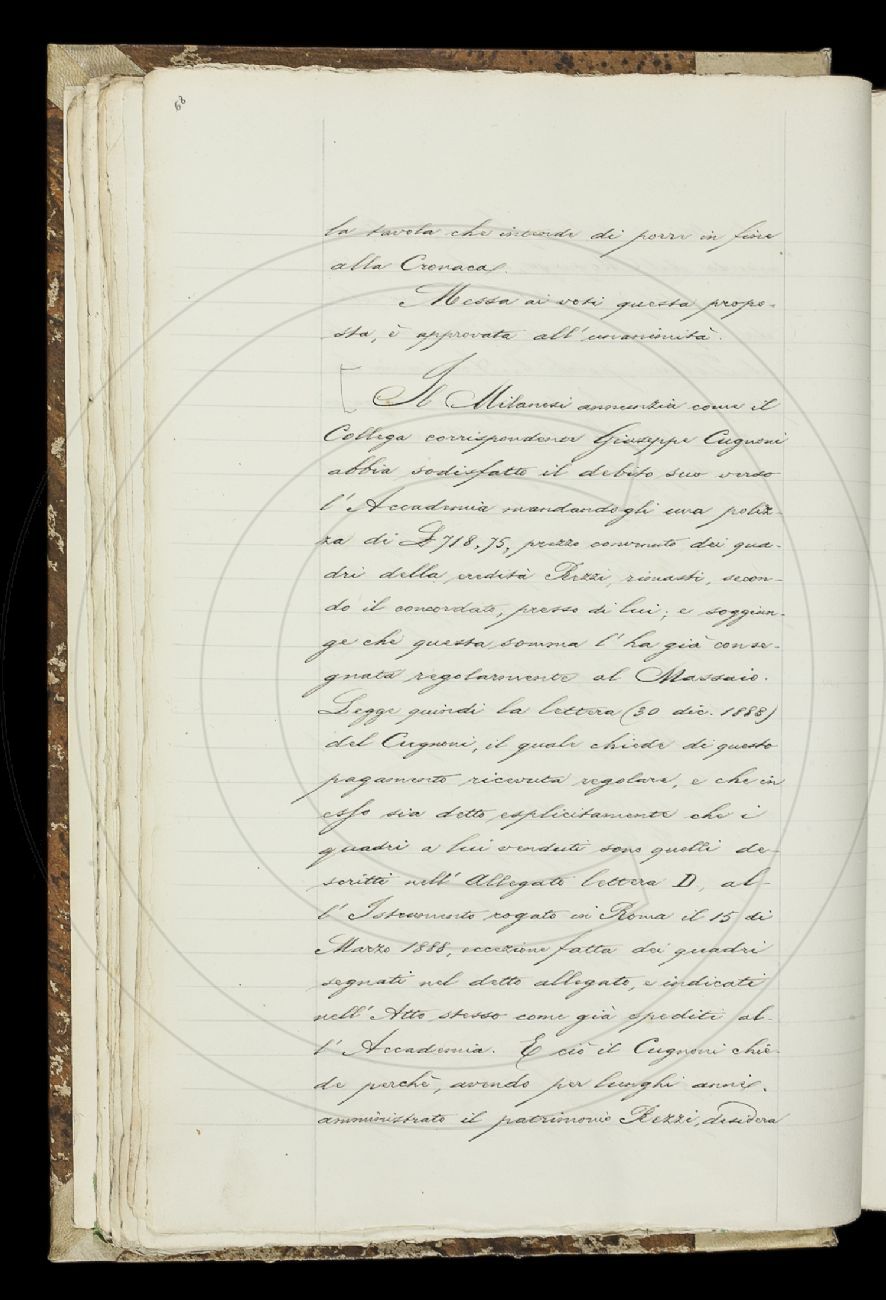 68
la tavola che intende di porre in fine
alla Cronaca.
Messa ai voti questa propo-
sta, è approvata all'unanimità.
Il Milanesi annunzia come il
Collega corrispondente Giuseppe Cugnoni
abbia sodisfatto il debito suo verso
l'Accademia mandandogli una poliz-
za di L 718,75, prezzo convenuto dei qua-
dri della eredità Rezzi, rimasti, secon-
do il concordato, presso di lui; e soggiun-
ge che questa somma l'ha già conse-
gnata regolarmente al Massaio.
Legge quindi la lettera (30 dic. 1888)
del Cugnoni, il quale chiede di questo
pagamento ricevuta regolare, e che in
esso sia detto esplicitamente che i
quadri a lui venduti sono quelli de-
scritti nell'Allegato lettera D, al-
l'Istrumento rogato in Roma il 15 di
Marzo 1888, eccezione fatta dei quadri
segnati nel detto allegato, e indicati
nell'Atto stesso come già spediti al-
l'Accademia. E ciò il Cugnoni chie-
de perchè, avendo per lunghi anni
amministrato il patrimonio Rezzi, desidera